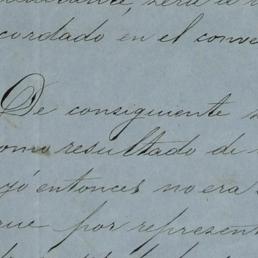 será
cordado en el conve
De consiguiente
omo resultado de
yó entonces no era
que por represent